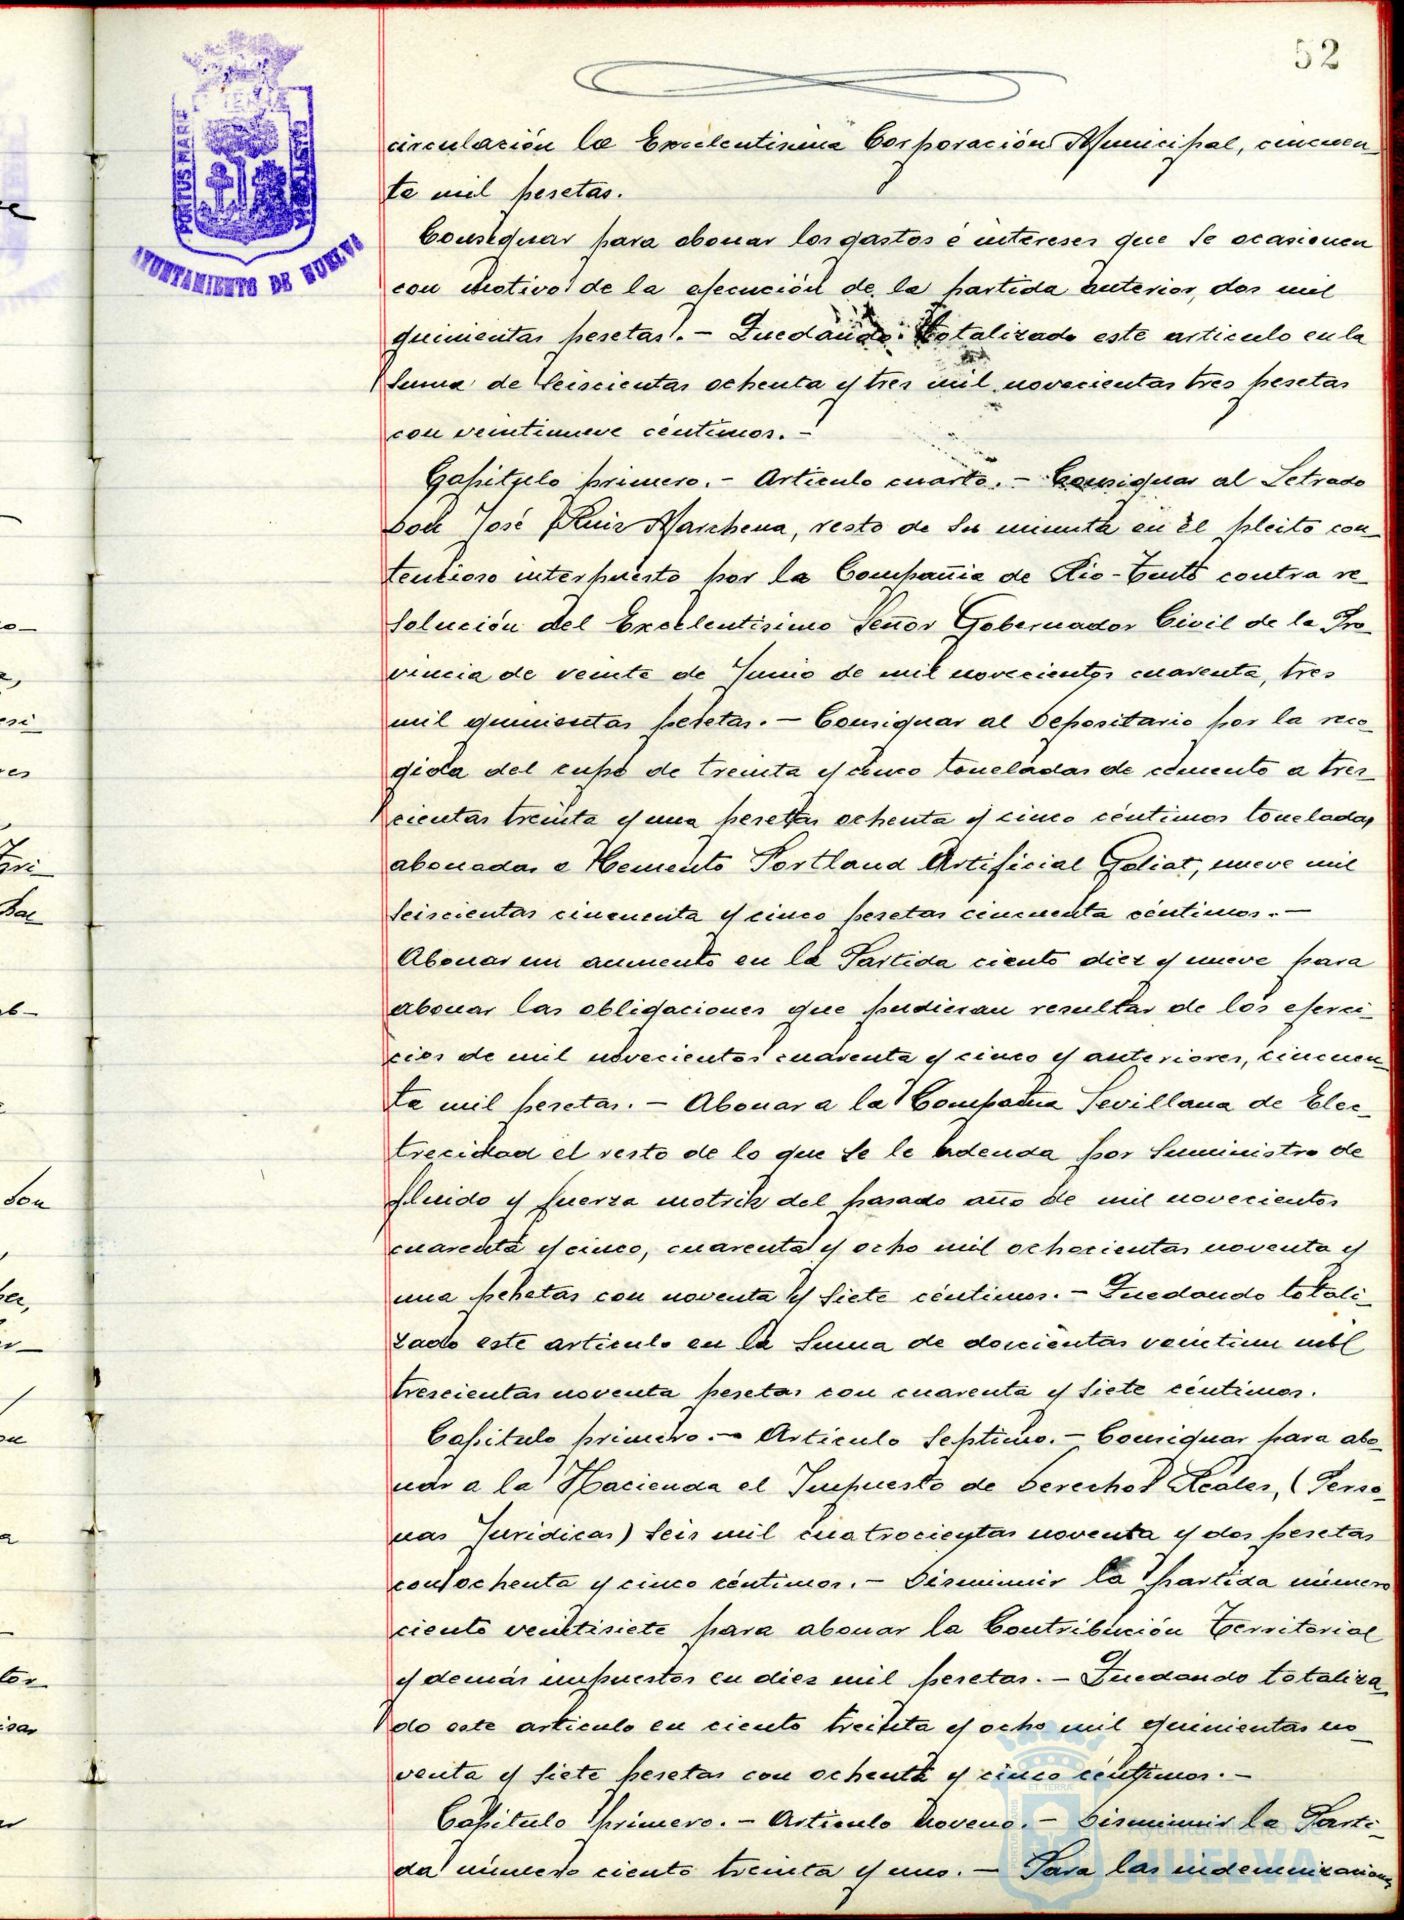 52
PORTUS MARIS
ET TERRÆ
CUSTODIA
AYUNTAMIENTO DE HUELVA
circulación la Excelentisima Corporación Municipal, cincuen-
ta mil pesetas.
Consignar para abonar los gastos é intereses que se ocasionen
con motivo de la ejecución de la partida anterior, dos mil
quinientas pesetas.- Quedando totalizado este articulo en la
suma de seiscientas ochenta y tres mil novecientas tres pesetas
con veintinueve céntimos.-
Capitulo primero.- Articulo cuarto.- Consignar al Letrado
Don José Ruiz Marchena, resto de su minuta en el pleito con-
tencioso interpuesto por la Compañia de Rio-Tinto contra re-
solución del Excelentisimo Señor Gobernador Civil de la Pro-
vincia de veinte de Junio de mil novecientos cuarenta, tres
mil quinientas pesetas.- Consignar al Depositario por la reco-
gida del cupo de treinta y cinco toneladas de cemento a tres-
cientas treinta y una pesetas ochenta y cinco céntimos toneladas
abonadas a Cemento Portland Artificial Goliat, nueve mil
seiscientas cincuenta y cinco pesetas cincuenta céntimos.-
Abonar un aumento en la Partida ciento diez y nueve para
abonar las obligaciones que pudieran resultar de los eferci-
cios de mil novecientos cuarenta y cinco y anteriores, cincuen-
ta mil pesetas.- Abonar a la Compañia Sevillana de Elec-
trecidad el resto de lo que se le adeuda por suministro de
fluido y fuerza motriz del pasado año de mil novecientos
cuarenta y cinco, cuarenta y ocho mil ochocientas noventa y
una pesetas con noventa y siete céntimos.- Quedando totali-
zado este articulo en la suma de doscientas veintiun mil
trescientas noventa pesetas con cuarenta y siete céntimos.
Capitulo primero.- Articulo Septimo.- Consignar para abo-
nar a la Hacienda el Impuesto de Derechos Reales, (Perso-
nas Juridicas) seis mil cuatrocientas noventa y dos pesetas
con ochenta y cinco céntimos.- Disminuir la partida número
ciento veintisiete para abonar la Contribución Territorial
y demás impuestos en diez mil pesetas.- Quedando totaliza-
do este articulo en ciento treinta y ocho mil quinientas no-
venta y siete pesetas con ochenta y cinco céntimos.-
Capitulo primero.- Articulo noveno.- Disminuir la Parti-
da número ciento treinta y uno.- Para las indemnizaciones
Ayuntamiento de
HUELVA